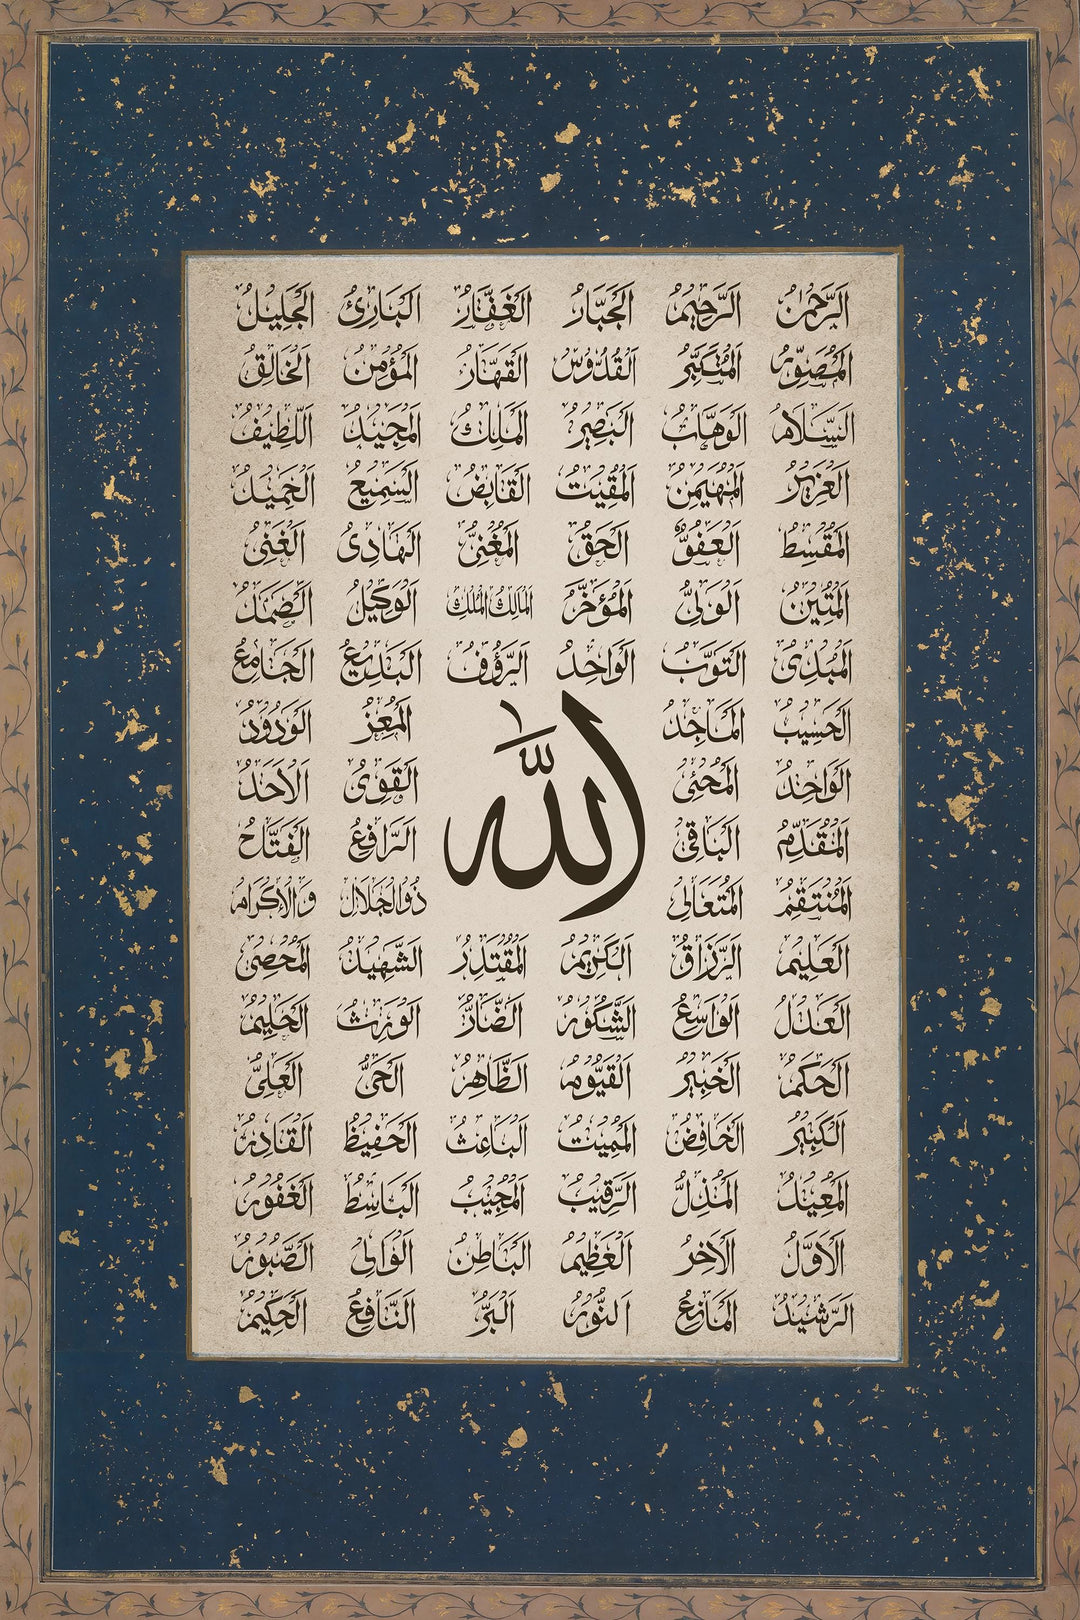 الرَّحْمٰنُ الرَّحِيمُ الْجَبَّارُ الْغَفَّارُ الْبَارِئُ الْجَلِيلُ
الْمُصَوِّرُ الْمُتَكَبِّرُ الْقُدُّوسُ الْقَهَّارُ الْمُؤْمِنُ الْخَالِقُ
السَّلَامُ الْوَهَّابُ الْبَصِيرُ الْمَلِكُ الْمَجِيدُ اللَّطِيفُ
الْعَزِيزُ الْمُهَيْمِنُ الْمُقِيتُ الْقَابِضُ السَّمِيعُ الْحَمِيدُ
الْمُقْسِطُ الْعَفُوُّ الْحَقُّ الْمُغْنِيُّ الْهَادِىُ الْغَنِىُّ
الْمَتِينُ الْوَلِىُّ الْمُؤَخِّرُ الْمَالِكُ الْمُلْكِ الْوَكِيلُ الصَّمَدُ
الْمُبْدِئُ التَّوَّبُ الْوَاحِدُ الرَّؤُفُ الْبَدِيعُ الْجَامِعُ
الْحَسِيبُ الْمَاجِدُ الْمُعِزُّ الْوَدُودُ
الْوَاحِدُ الْمُحْيِىُ الْقَوِىُّ الْأَحَدُ
الْمُقَدِّمُ الْبَاقِىُ اللّٰه الرَّافِعُ الْفَتَّاحُ
الْمُنْتَقِمُ الْمُتَعَالِى ذُو الْجَلَالِ وَالْإِكْرَامِ
الْعَلِيمُ الرَّزَّاقُ الْكَرِيمُ الْمُقْتَدِرُ الشَّهِيدُ الْمُحْصِىُ
الْعَدْلُ الْوَاسِعُ الشَّكُورُ الضَّارُّ الْوَرِثُ الْحَلِيمُ
الْحَكَمُ الْخَبِيرُ الْقَيُّومُ الظَّاهِرُ الْحَىُّ الْعَلِىُّ
الْكَبِيرُ الْخَافِضُ الْمُمِيتُ الْبَاعِثُ الْحَفِيظُ الْقَادِرُ
الْمُعِيدُ الْمُذِلُّ الرَّقِيبُ الْمُجِيبُ الْبَاسِطُ الْغَفُورُ
الْأَوَّلُ الْآخِرُ الْعَظِيمُ الْبَاطِنُ الْوَالِى الصَّبُورُ
الرَّشِيدُ الْمَانِعُ النُّورُ الْبَرُّ النَّافِعُ الْحَكِيمُ